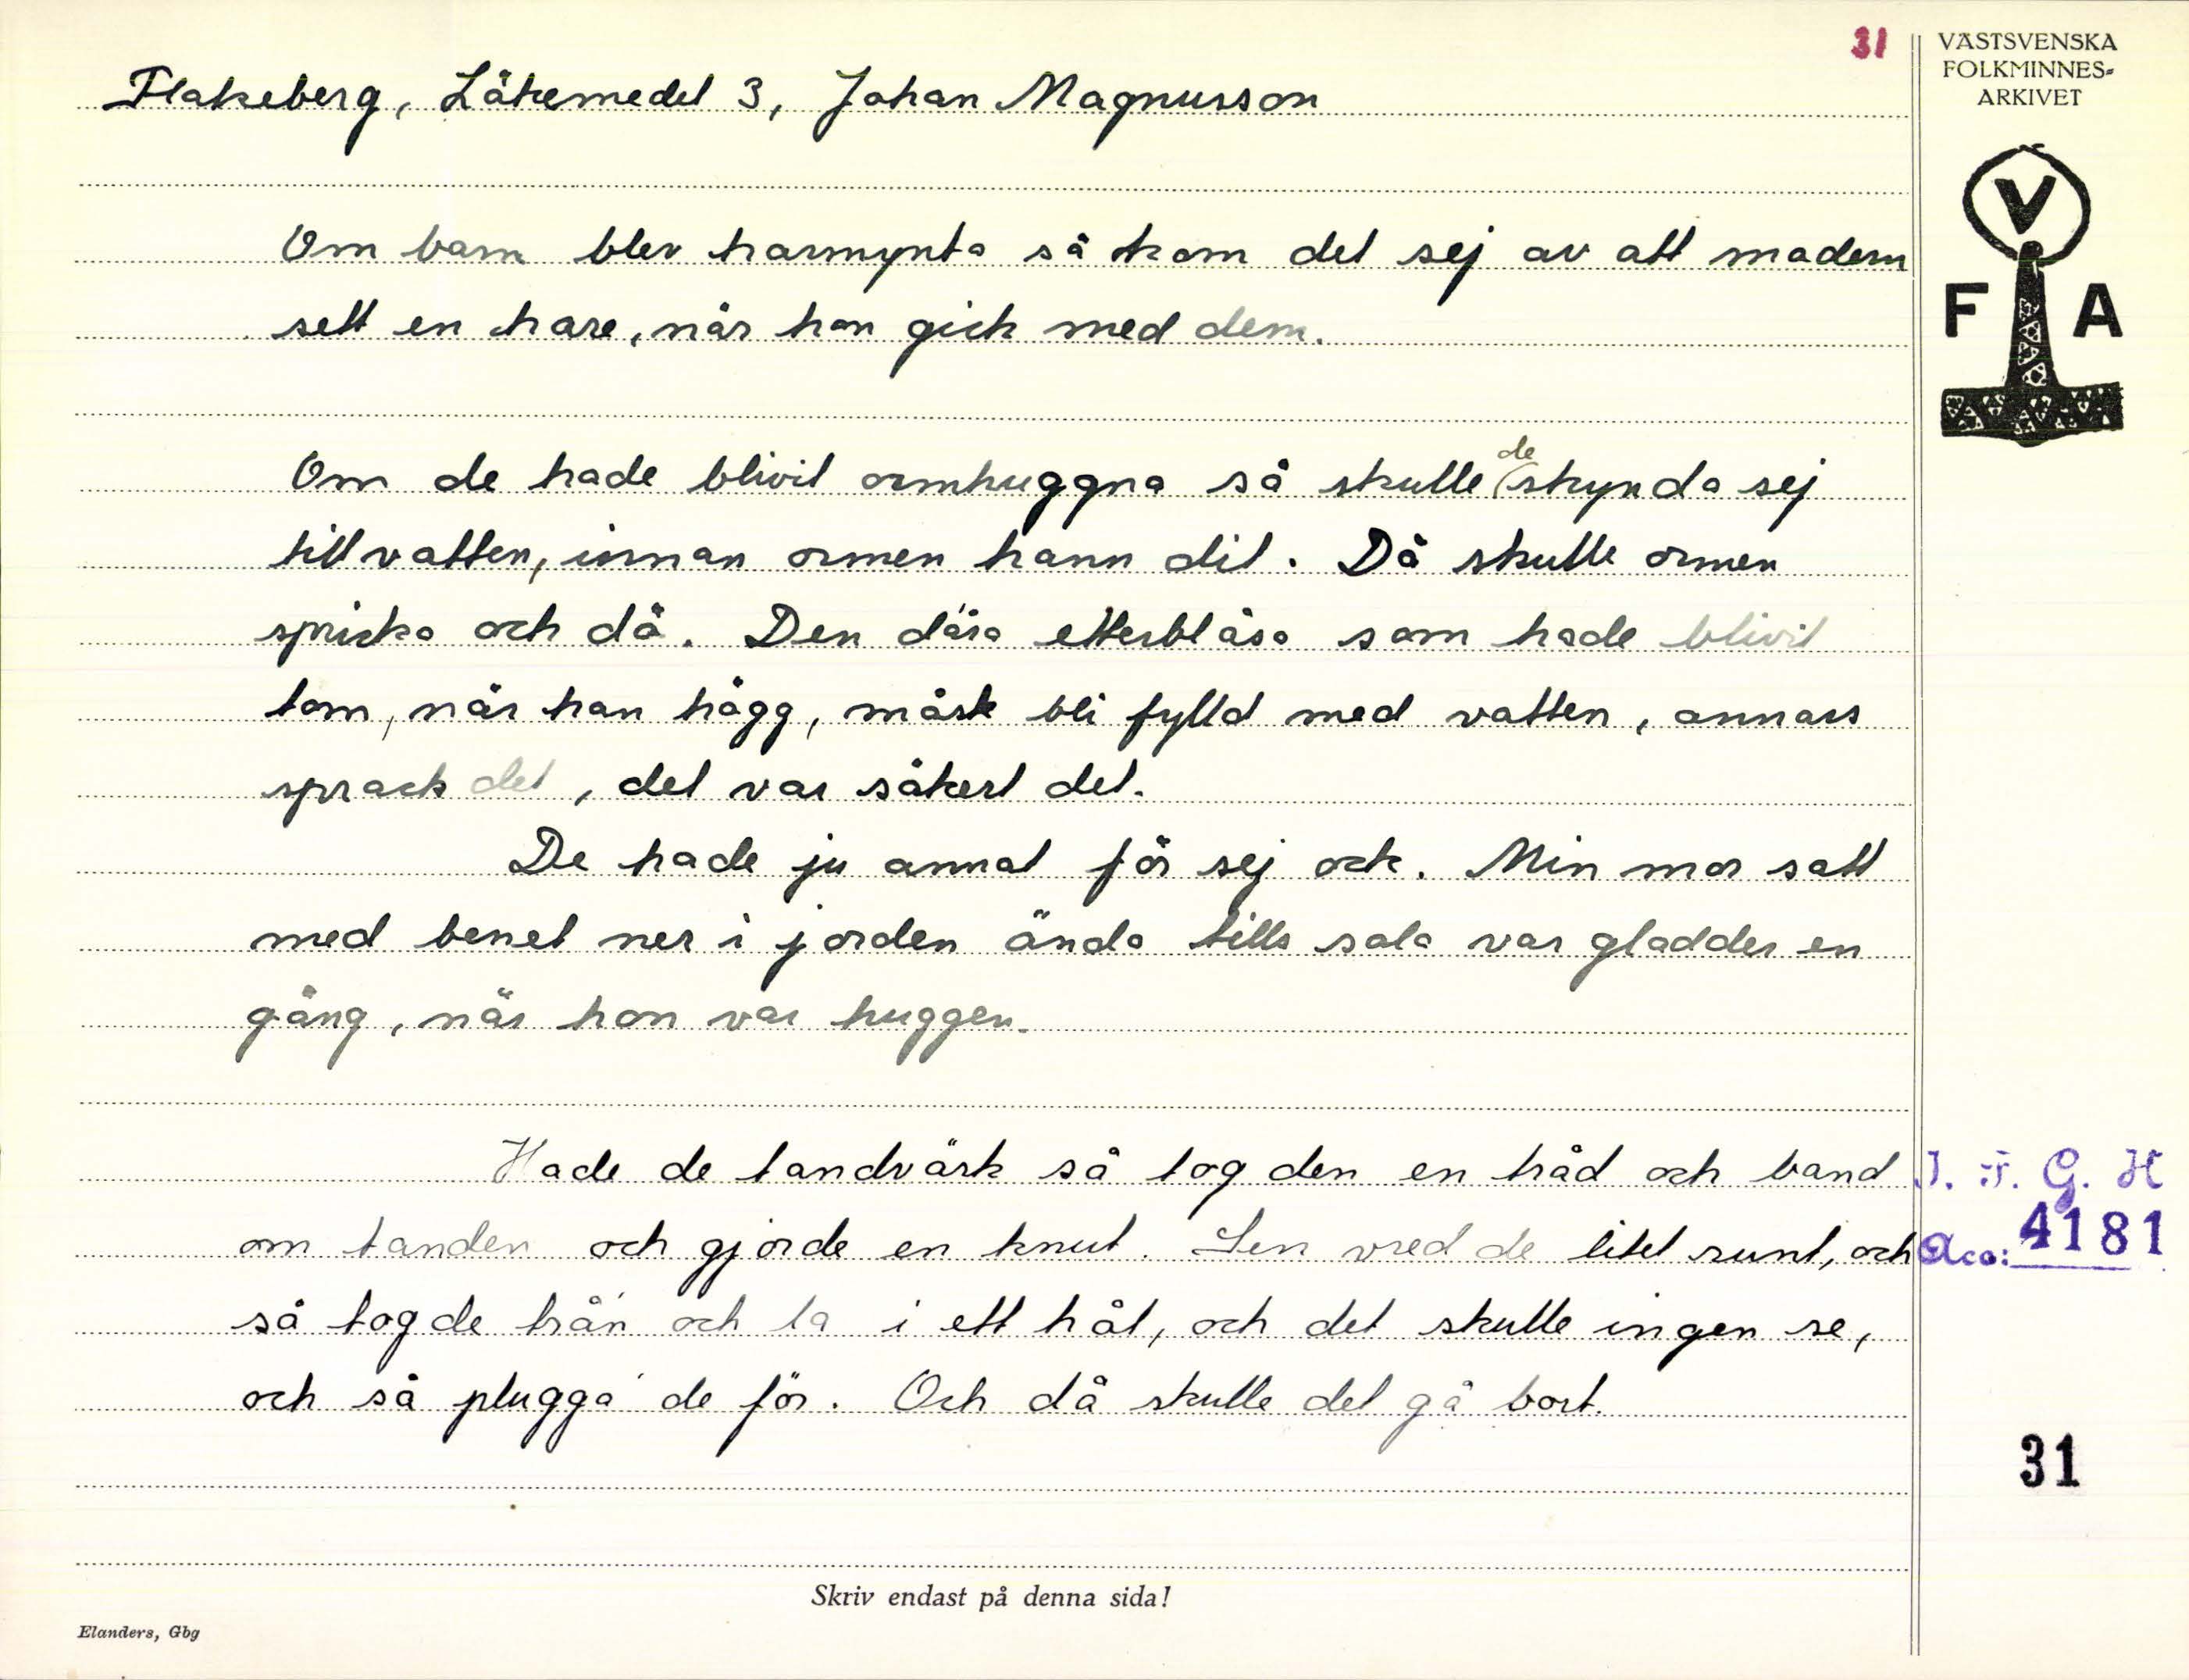 31
VÄSTSVENSKA
FOLKMINNES-
ARKIVET
Flakeberg, Läkemedel 3, Johan Magnusson
V
F A
Om barn blev harmynta så kom det sej av att modern
sett en hare, när hon gick med dem.
Om de hade blivit ormhuggna så skulle de skynda sej
till vatten, innan ormen hann dit. Då skulle ormen
spricka och dö. Den dära etterblåsa som hade blivit
tom, när han högg, måste bli fylld med vatten, annars
sprack det, det var säkert det.
De hade ju annat för sej ock. Min mor satt
med benet ner i jorden ända tills sola var gladder en
gång, när hon var huggen.
Hade de tandvärk så tog den en tråd och band
om tanden och gjorde en knut. Sen vred de litet runt, och
så tog de trån' och la i ett hål, och det skulle ingen se,
och så plugga' de för. Och då skulle det gå bort.
I. F. G. H
Acc: 4181
31
Skriv endast på denna sida!
Elanders, Gbg